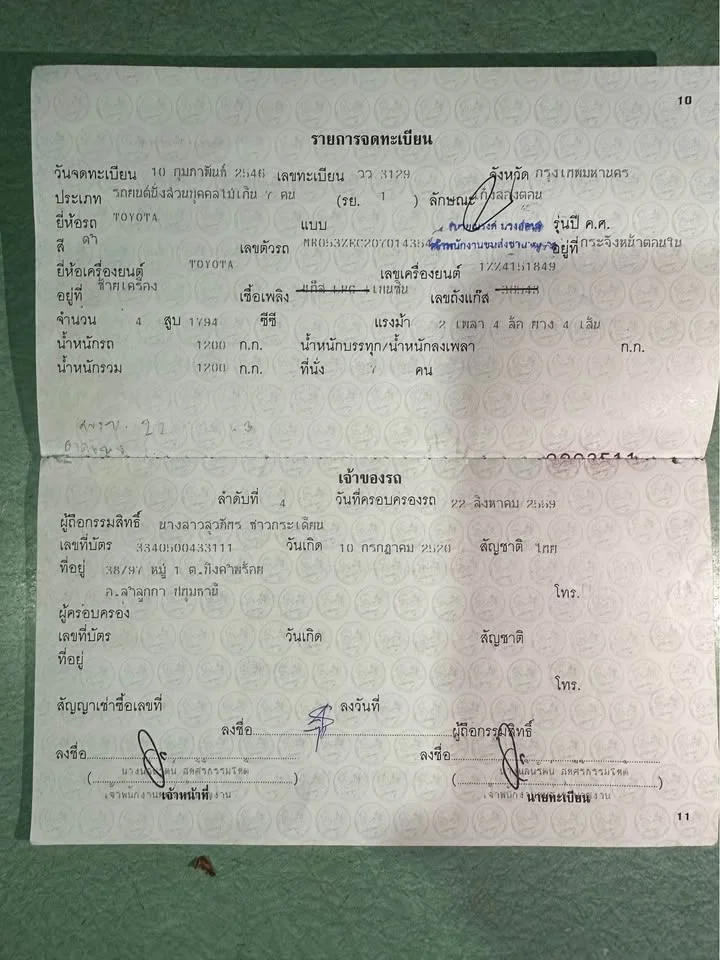 10
รายการจดทะเบียน
วันจดทะเบียน 10 กุมภาพันธ์ 2546 เลขทะเบียน วว 3129 จังหวัด กรุงเทพมหานคร
ประเภท รถยนต์นั่งส่วนบุคคลไม่เกิน 7 คน (รย. 1 ) ลักษณะ เก๋งสองตอน
ยี่ห้อรถ TOYOTA แบบ รุ่นปี ค.ศ.
สี ดำ เลขตัวรถ MR053ZEC207014354 อยู่ที่ กระจังหน้าตอนใน
ยี่ห้อเครื่องยนต์ TOYOTA เลขเครื่องยนต์ 1ZZ4151849
อยู่ที่ ซ้ายเครื่อง เชื้อเพลิง เลขถังแก๊ส
จำนวน 4 สูบ 1794 ซีซี แรงม้า 2 เพลา 4 ล้อ ยาง 4 เส้น
น้ำหนักรถ 1200 ก.ก. น้ำหนักบรรทุก/น้ำหนักลงเพลา ก.ก.
น้ำหนักรวม 1200 ก.ก. ที่นั่ง 7 คน
22
เจ้าของรถ
ลำดับที่ 4 วันที่ครอบครองรถ 22 สิงหาคม 2559
ผู้ถือกรรมสิทธิ์
เลขที่บัตร 3340500433111 วันเกิด 10 กรกฎาคม 2520 สัญชาติ ไทย
ที่อยู่ 38/97 หมู่ 1 ต.บึงคำพร้อย
อ.ลำลูกกา ปทุมธานี โทร.
ผู้ครอบครอง
เลขที่บัตร วันเกิด สัญชาติ
ที่อยู่
โทร.
สัญญาเช่าซื้อเลขที่ ลงวันที่
ลงชื่อ ผู้ถือกรรมสิทธิ์
ลงชื่อ ลงชื่อ
( ) ( )
เจ้าหน้าที่ นายทะเบียน
11